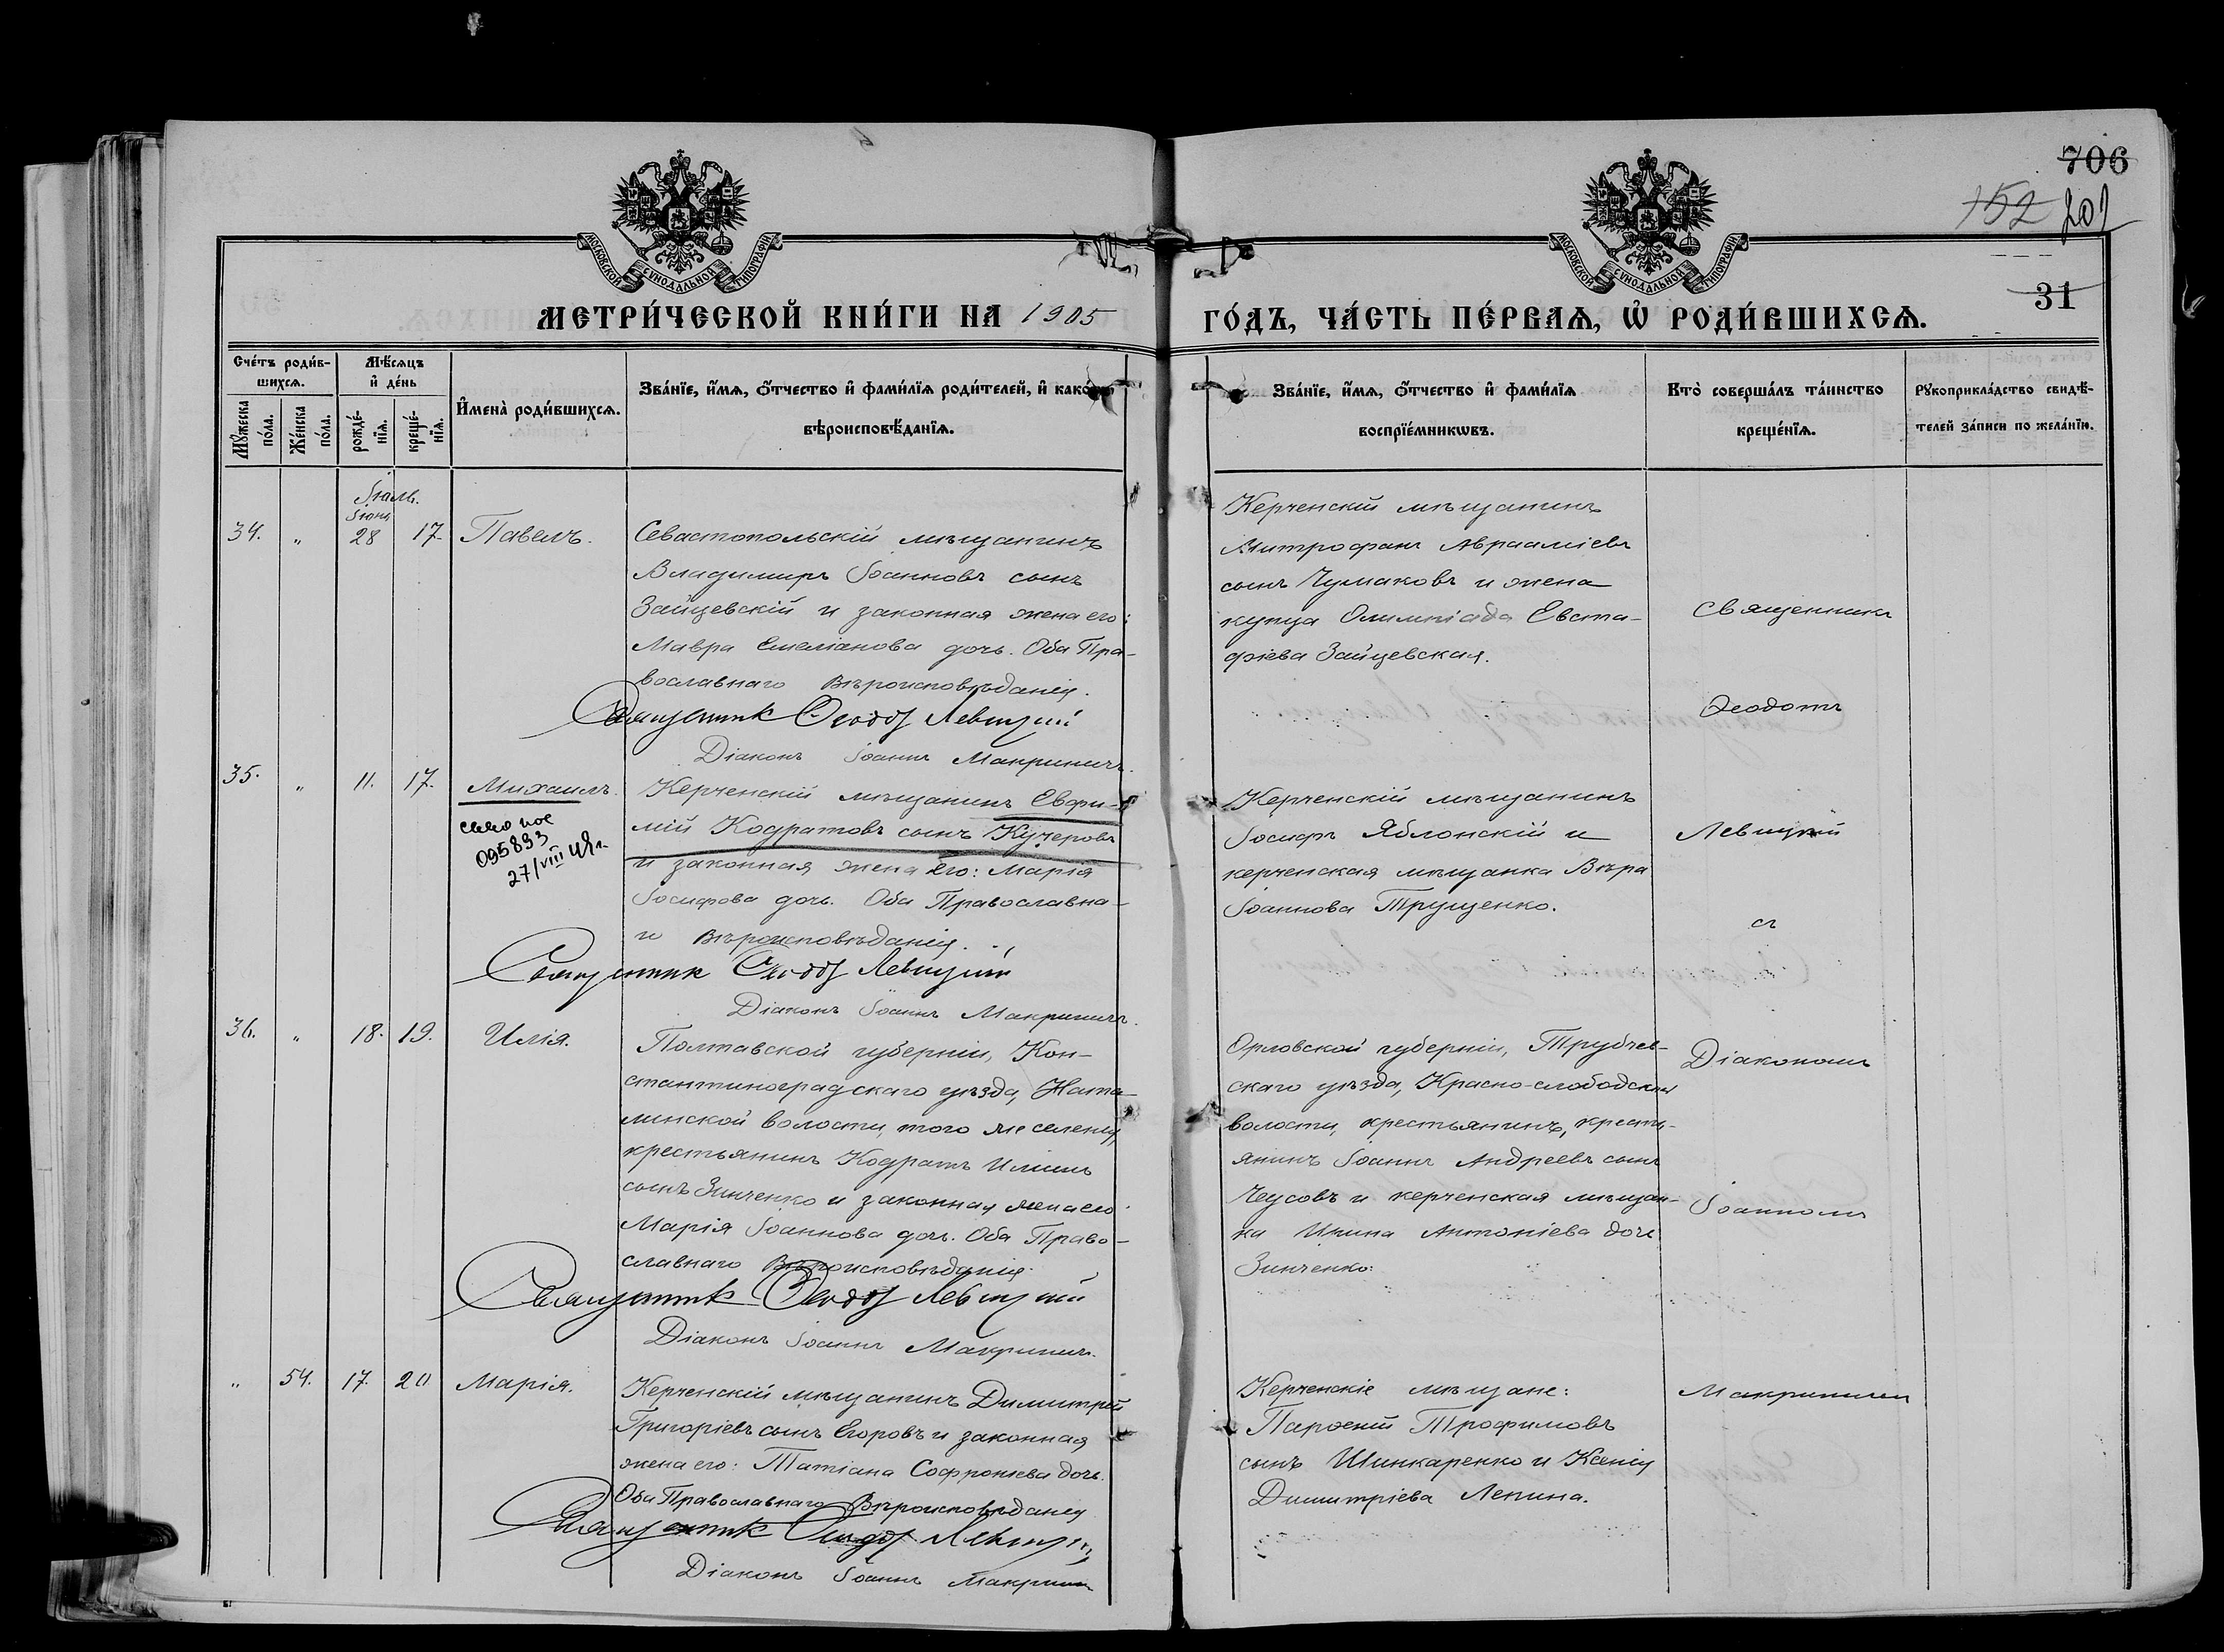 706
152 201
31
МОСКОВСКОЙ СѴНОДАЛЬНОЙ ТИПОГРАФІИ.
МОСКОВСКОЙ СѴНОДАЛЬНОЙ ТИПОГРАФІИ.
МЕТРИ́ЧЕСКОЙ КНИ́ГИ НА 1905
ГО́ДЪ, ЧА́СТЬ ПЕ́РВАѦ, Ѡ҆ РОДИ́ВШИХСѦ.
Сче́тъ роди́в-
шихсѧ.
Мѣ́сѧцъ
и҆ де́нь
Мꙋ́жеска по́ла.
Же́нска по́ла.
рожде́-
нїѧ.
креще́-
нїѧ.
И҆мена̀ роди́вшихсѧ.
Зва́нїе, и҆́мѧ, ѻ҆́тчество и҆ фами́лїѧ роди́телей, и҆ како́гѡ
вѣроисповѣ́данїѧ.
Зва́нїе, и҆́мѧ, ѻ҆́тчество и҆ фами́лїѧ
воспрїе́мникѡвъ.
Кто̀ соверша́лъ та́инство
креще́нїѧ.
Рꙋкоприкла́дство свидѣ́-
телей за́писи по жела́нїю.
Іюль.
Іюня
34. „ 28 17. Павелъ.
Севастопольскій мѣщанинъ
Владимиръ Іоанновъ сынъ
Зайцевскій и законная жена его:
Мавра Емеліанова дочь. Оба Пра-
вославнаго Вѣроисповѣданія.
Священник Ѳеодот Левицкий
Діаконъ Іоаннъ Макриничъ.
Керченскій мѣщанинъ
Митрофанъ Авраамiевъ
сынъ Чумаковъ и жена
купца Олимпіада Евста-
фіева Зайцевская.
Священникъ
Ѳеодотъ
35. „ 11. 17. Михаилъ.
095833
27/VIII
Керченскій мѣщанинъ Евфи-
мій Кодратовъ сынъ Кучеровъ
и законная жена его: Марія
Іосифова дочь. Оба Православна-
го Вѣроисповѣданія.
Священник Ѳеодот Левицкий
Діаконъ Іоаннъ Макриничъ.
Керченскій мѣщанинъ
Іосифъ Яблонскій и
керченская мѣщанка Вѣра
Іоаннова Трущенко.
Левицкій
съ
36. „ 18. 19. Илія.
Полтавской губерніи, Кон-
стантиноградскаго уѣзда, Ната-
линской волости, того же селенія,
крестьянинъ Кодратъ Иліинъ
сынъ Зинченко и законная жена его:
Марія Іоаннова дочь. Оба Право-
славнаго Вѣроисповѣданія.
Священник Ѳеодот Левицкий
Діаконъ Іоаннъ Макриничъ.
Орловской губерніи, Трубчев-
скаго уѣзда, Красно-слободской
волости, крестьянинъ, кресть-
янинъ Іоаннъ Андреевъ сынъ
Чеусовъ и керченская мѣщан-
ка Ирина Антоніева дочь
Зинченко.
Діакономъ
Іоанномъ
„ 54. 17. 20 Марія.
Керченскій мѣщанинъ Димитрій
Григоріевъ сынъ Егоровъ и законная
жена его: Татіана Софроніева дочь.
Оба Православнаго Вѣроисповѣданія
Священник Ѳеодот Левицкий
Діаконъ Іоаннъ Макринич
Керченскіе мѣщане:
Парѳеній Трофимовъ
сынъ Шинкаренко и Ксенія
Димитріева Лепина.
Макриничем